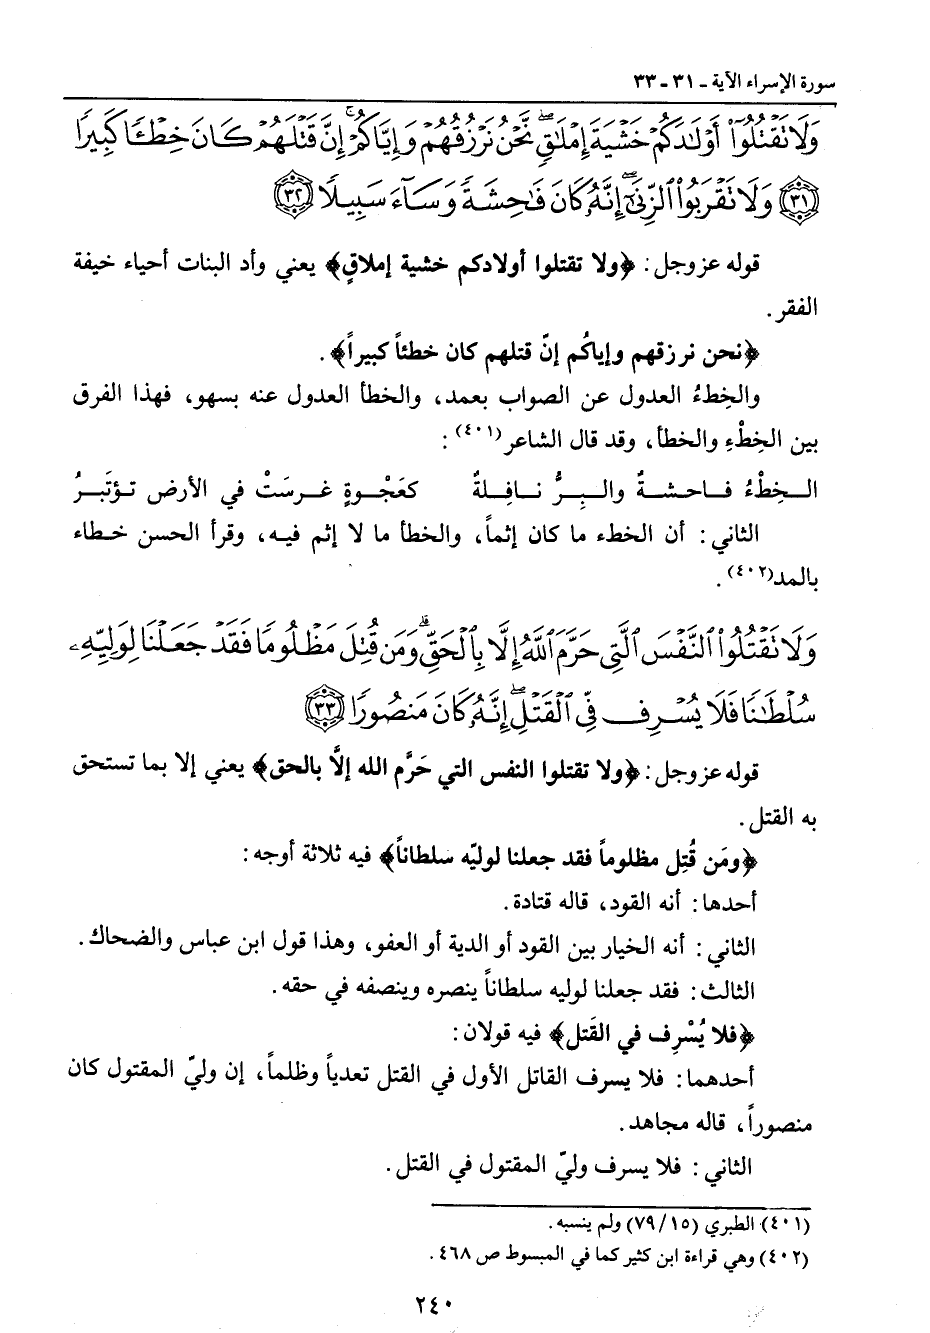 سورة الإسراء الآية - ٣١ - ٣٣
وَلَا تَقْتُلُوٓا۟ أَوْلَـٰدَكُمْ خَشْيَةَ إِمْلَـٰقٍ ۖ نَّحْنُ نَرْزُقُهُمْ وَإِيَّاكُمْ ۚ إِنَّ قَتْلَهُمْ كَانَ خِطْـًٔا كَبِيرًا
﴿٣١﴾ وَلَا تَقْرَبُوا۟ ٱلزِّنَىٰٓ ۖ إِنَّهُۥ كَانَ فَـٰحِشَةً وَسَآءَ سَبِيلًا ﴿٣٢﴾
قوله عز وجل: ﴿ولا تقتلوا أولادكم خشية إملاقٍ﴾ يعني وأد البنات أحياء خيفة
الفقر.
﴿نحن نرزقهم وإياكُم إنّ قتلهم كان خطئاً كبيراً﴾.
والخِطءُ العدول عن الصواب بعمد، والخطأ العدول عنه بسهو، فهذا الفرق
بين الخِطْءِ والخطأ، وقد قال الشاعر(٤٠١):
الـخِطْءُ فـاحـشـةٌ والـبِـرُّ نـافِـلةٌ كعَجْـوةٍ غـرسَتْ في الأرض تـؤتَبـرُ
الثاني: أن الخطء ما كان إثماً، والخطأ ما لا إثم فيه، وقرأ الحسن خـطاء
بالمد(٤٠٢).
وَلَا تَقْتُلُوا۟ ٱلنَّفْسَ ٱلَّتِى حَرَّمَ ٱللَّهُ إِلَّا بِٱلْحَقِّ ۗ وَمَن قُتِلَ مَظْلُومًا فَقَدْ جَعَلْنَا لِوَلِيِّهِۦ
سُلْطَـٰنًا فَلَا يُسْرِف فِّى ٱلْقَتْلِ ۖ إِنَّهُۥ كَانَ مَنصُورًا ﴿٣٣﴾
قوله عز وجل: ﴿ولا تقتلوا النفس التي حَرَّم الله إلاَّ بالحق﴾ يعني إلا بما تستحق
به القتل.
﴿ومَن قُتِل مظلوماً فقد جعلنا لوليّه سلطاناً﴾ فيه ثلاثة أوجه:
أحدها: أنه القود، قاله قتادة.
الثاني: أنه الخيار بين القود أو الدية أو العفو، وهذا قول ابن عباس والضحاك.
الثالث: فقد جعلنا لوليه سلطاناً ينصره وينصفه في حقه.
﴿فلا يُسْرِف في القَتل﴾ فيه قولان:
أحدهما: فلا يسرف القاتل الأول في القتل تعدياً وظلماً، إن وليّ المقتول كان
منصوراً، قاله مجاهد.
الثاني: فلا يسرف وليّ المقتول في القتل.
(٤٠١) الطبري (٧٩/١٥) ولم ينسبه.
(٤٠٢) وهي قراءة ابن كثير كما في المبسوط ص ٤٦٨.
٢٤٠